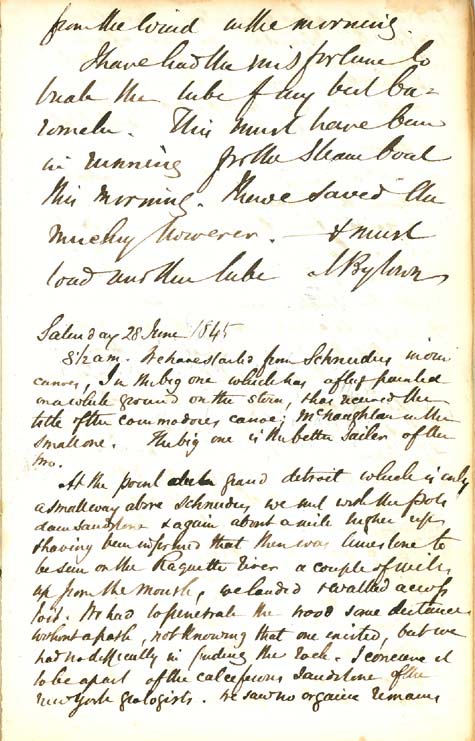 from the wind in the morning.
I have had the misfortune to
break the tube of my best ba=
rometer. This must have been
in running for the Steam boat
this morning. I have saved the
mercury however. — & must
load another tube at Bytown
Saturday 28 June 1845
8 1/2 am. We have started from Schneiders in our
canoes, I in the big one which has a flag painted
on a white ground on the stern, & has received the
title of the commodores canoe; McNaughtan in the
small one. The big one is the better sailer of the
two.
At the point du grand detroit which is only
a small way above Schneiders we met with the Pots
dam sandstone & again about a mile higher up
& having been informed that there was limestone to
be seen on the Raquette River a couple of miles
up from the mouth, we landed & walked across
to it. We had to penetrate the wood some distance
without a path, not knowing that one existed, but we
had no difficulty in finding the rock. I conceive it
to be a part of the calciferous sandstone of the
New York geologists. We saw no organic remains